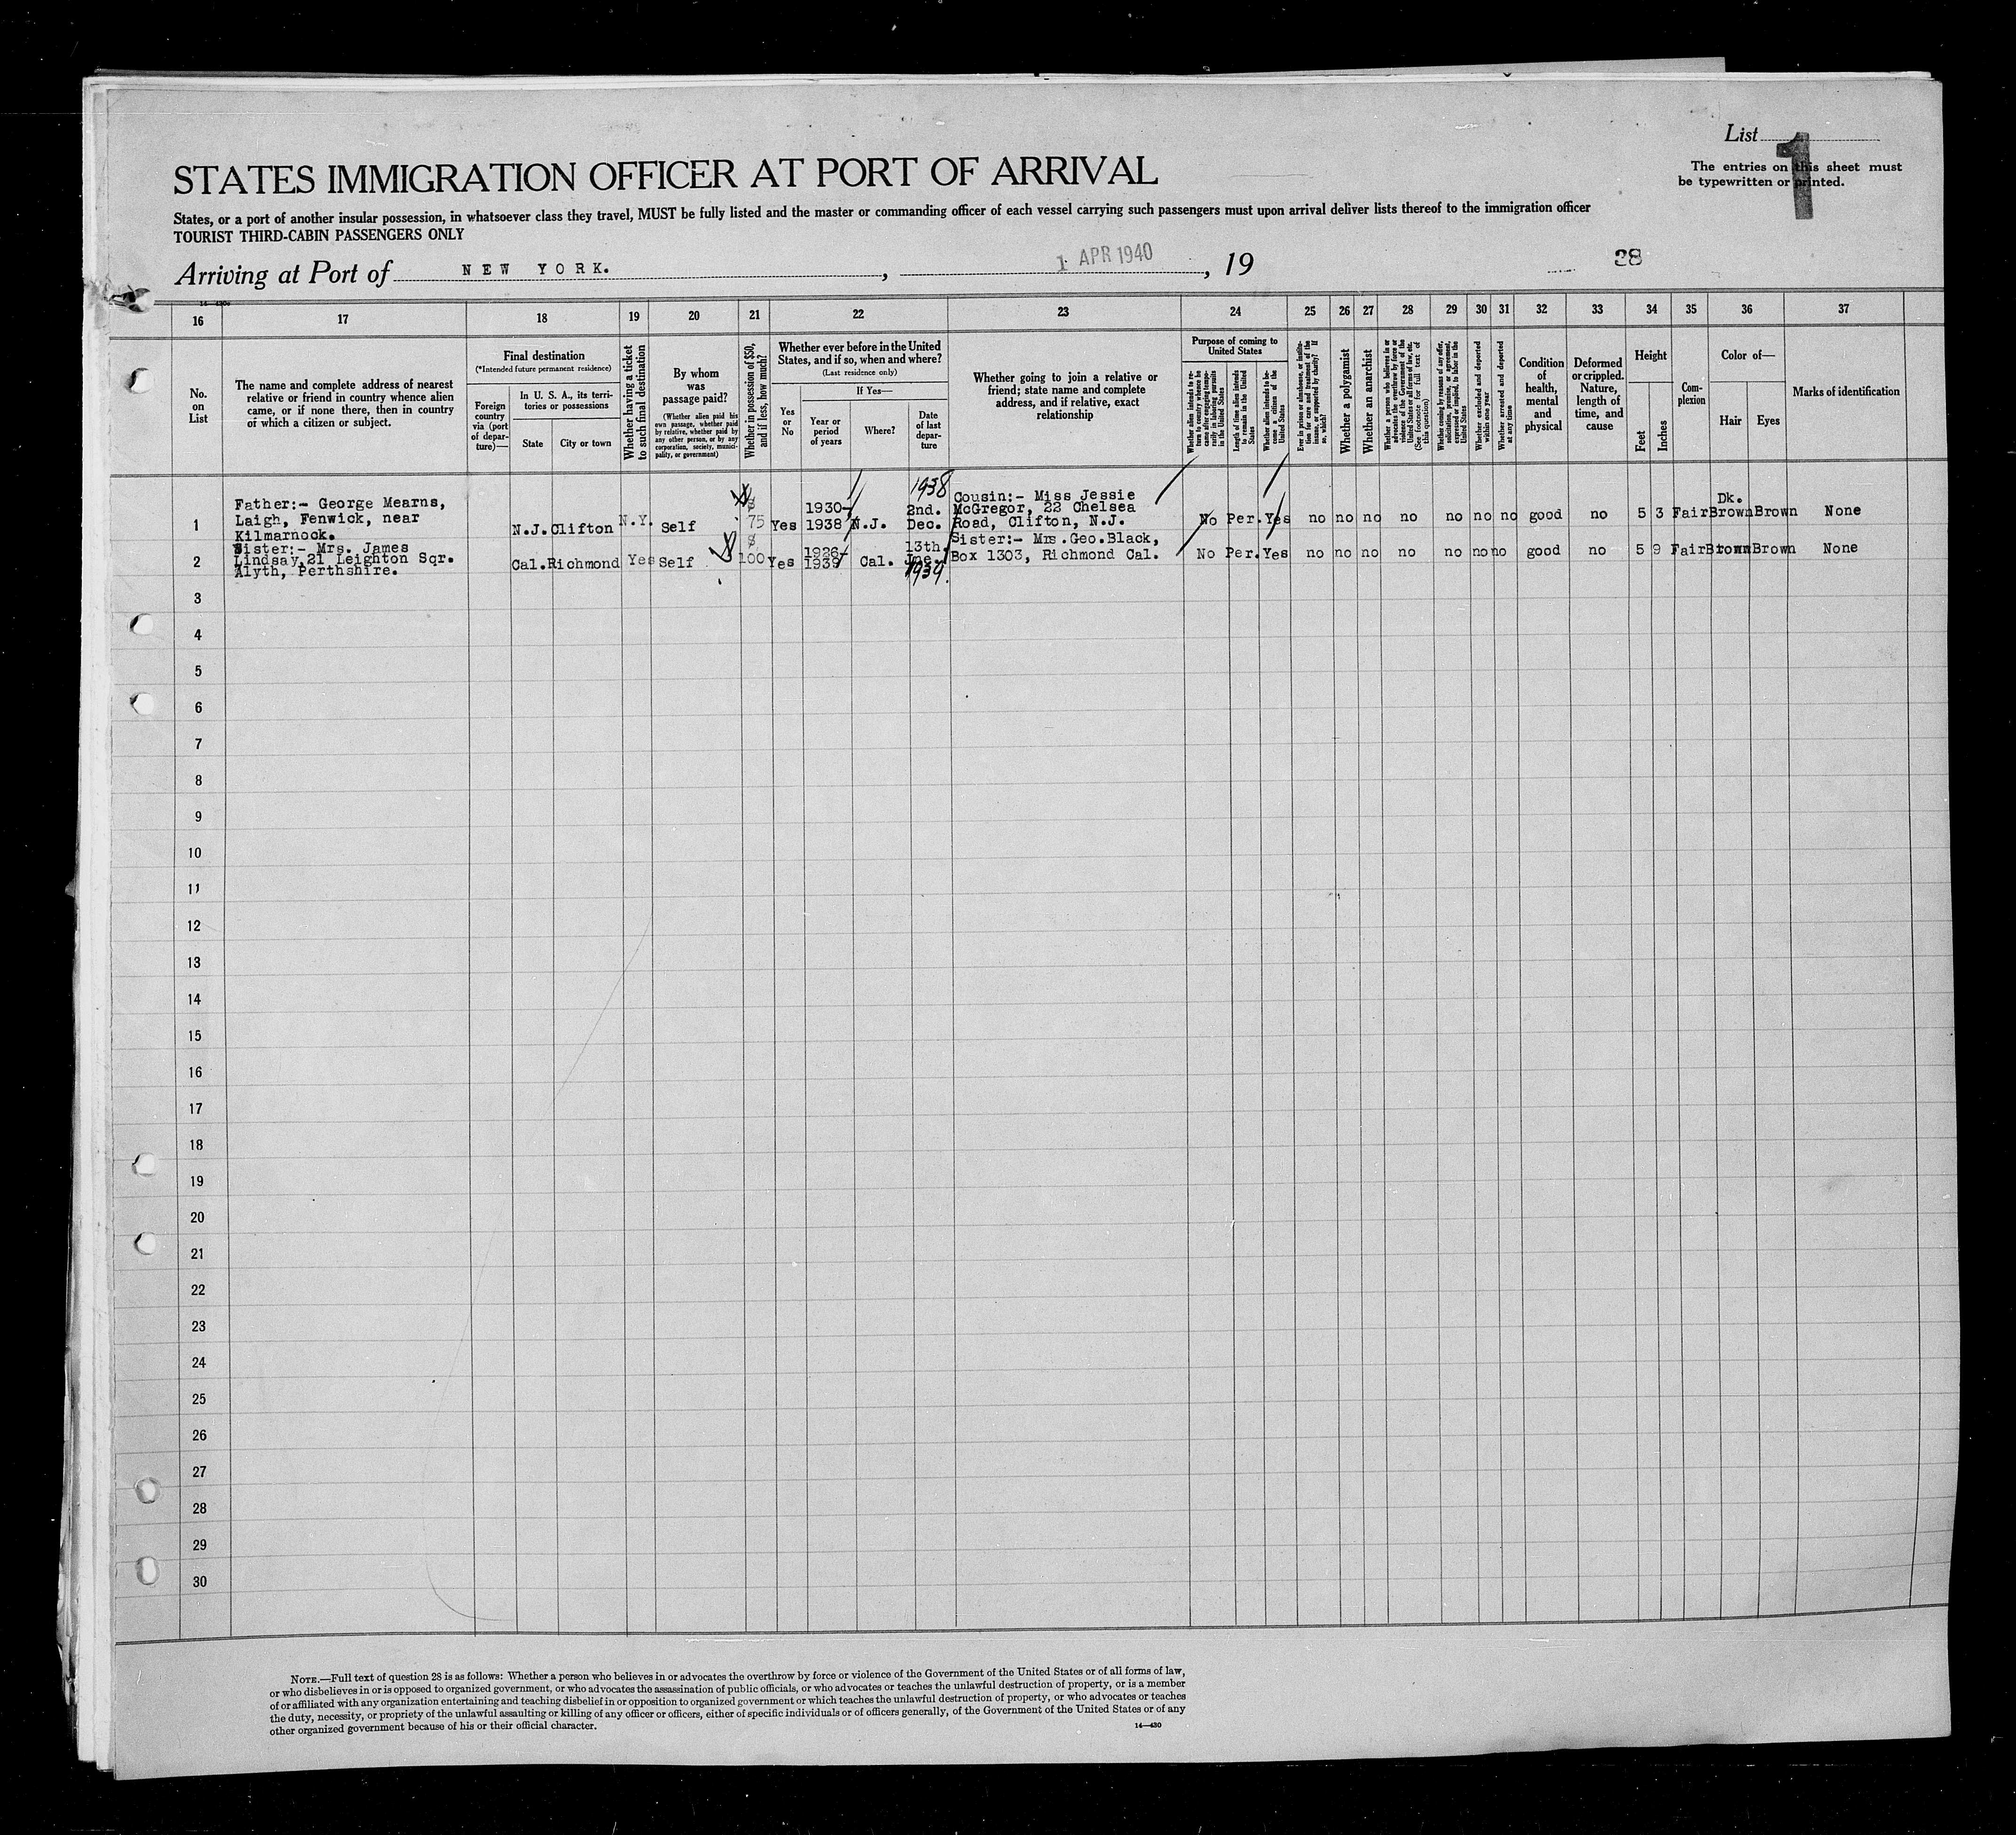 List
1
The entries on this sheet must
be typewritten or printed.
STATES IMMIGRATION OFFICER AT PORT OF ARRIVAL
States, or a port of another insular possession, in whatsoever class they travel, MUST be fully listed and the master or commanding officer of each vessel carrying such passengers must upon arrival deliver lists thereof to the immigration officer
TOURIST THIRD-CABIN PASSENGERS ONLY
Arriving at Port of NEW YORK. , 1 APR 1940 , 19 28
16 17 18 19 20 21 22 23 24 25 26 27 28 29 30 31 32 33 34 35 36 37
No.
on
List
The name and complete address of nearest
relative or friend in country whence alien
came, or if none there, then in country
of which a citizen or subject.
Final destination
(*Intended future permanent residence)
Foreign
country
via (port
of depar-
ture)—
In U. S. A., its terri-
tories or possessions
State City or town
Whether having a ticket
to such final destination
By whom
was
passage paid?
(Whether alien paid his
own passage, whether paid
by relative, whether paid by
any other person, or by any
corporation, society, munici-
pality, or government)
Whether in possession of $50,
and if less, how much?
Whether ever before in the United
States, and if so, when and where?
(Last residence only)
Yes
or
No
If Yes—
Year or
period
of years
Where?
Date
of last
depar-
ture
Whether going to join a relative or
friend; state name and complete
address, and if relative, exact
relationship
Purpose of coming to
United States
Whether alien intends to re-
turn to country whence he
came after engaging tempo-
rarily in laboring pursuits
in the United States
Length of time alien intends
to remain in the United
States
Whether alien intends to be-
come a citizen of the
United States
Ever in prison or almshouse, or institu-
tion for care and treatment of the
insane, or supported by charity? If
so, which?
Whether a polygamist
Whether an anarchist
Whether a person who believes in or
advocates the overthrow by force or
violence of the Government of the
United States or all forms of law, etc.
(See footnote for full text of
this question)
Whether coming by reasons of any offer,
solicitation, promise, or agreement,
expressed or implied, to labor in the
United States
Whether excluded and deported
within one year
Whether arrested and deported
at any time
Condition
of
health,
mental
and
physical
Deformed
or crippled.
Nature,
length of
time, and
cause
Height
Feet
Inches
Com-
plexion
Color of—
Hair Eyes
Marks of identification
1
Father:- George Mearns,
Laigh, Fenwick, near
Kilmarnock.
N.J. Clifton N.Y. Self $ 75 Yes 1930-
1938 N.J. 1938
2nd.
Dec.
Cousin:- Miss Jessie
McGregor, 22 Chelsea
Road, Clifton, N.J.
No Per. Yes no no no no no no no good no 5 3 Fair Dk.
Brown Brown None
2
Sister:- Mrs. James
Lindsay, 21 Leighton Sqr.
Alyth, Perthshire.
Cal. Richmond Yes Self $ 100 Yes 1926-
1939 Cal. 13th.
Jne.
1939.
Sister:- Mrs.Geo.Black,
Box 1303, Richmond Cal.
No Per. Yes no no no no no no no good no 5 9 Fair Brown Brown None
3
4
5
6
7
8
9
10
11
12
13
14
15
16
17
18
19
20
21
22
23
24
25
26
27
28
29
30
NOTE.—Full text of question 28 is as follows: Whether a person who believes in or advocates the overthrow by force or violence of the Government of the United States or of all forms of law,
or who disbelieves in or is opposed to organized government, or who advocates the assassination of public officials, or who advocates or teaches the unlawful destruction of property, or is a member
of or affiliated with any organization entertaining and teaching disbelief in or opposition to organized government or which teaches the unlawful destruction of property, or who advocates or teaches
the duty, necessity, or propriety of the unlawful assaulting or killing of any officer or officers, either of specific individuals or of officers generally, of the Government of the United States or of any
other organized government because of his or their official character.
14—430